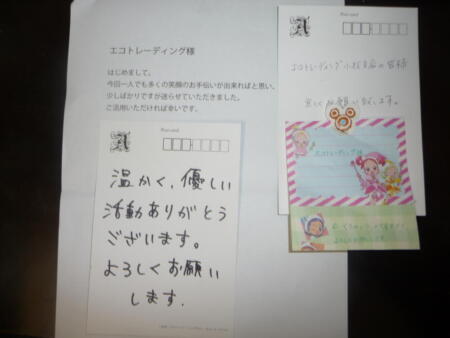 エコトレーディング様
はじめまして。
今回一人でも多くの笑顔のお手伝いが出来ればと思い、
少しばかりですが送らせていただきました。
ご活用いただければ幸いです。
Post card
温かく、優しい
活動ありがとう
ございます。
よろしくお願い
します。
Post card
エコトレーディング小松支店の皆様
宜しくお願い致します。
エコトレーディング様